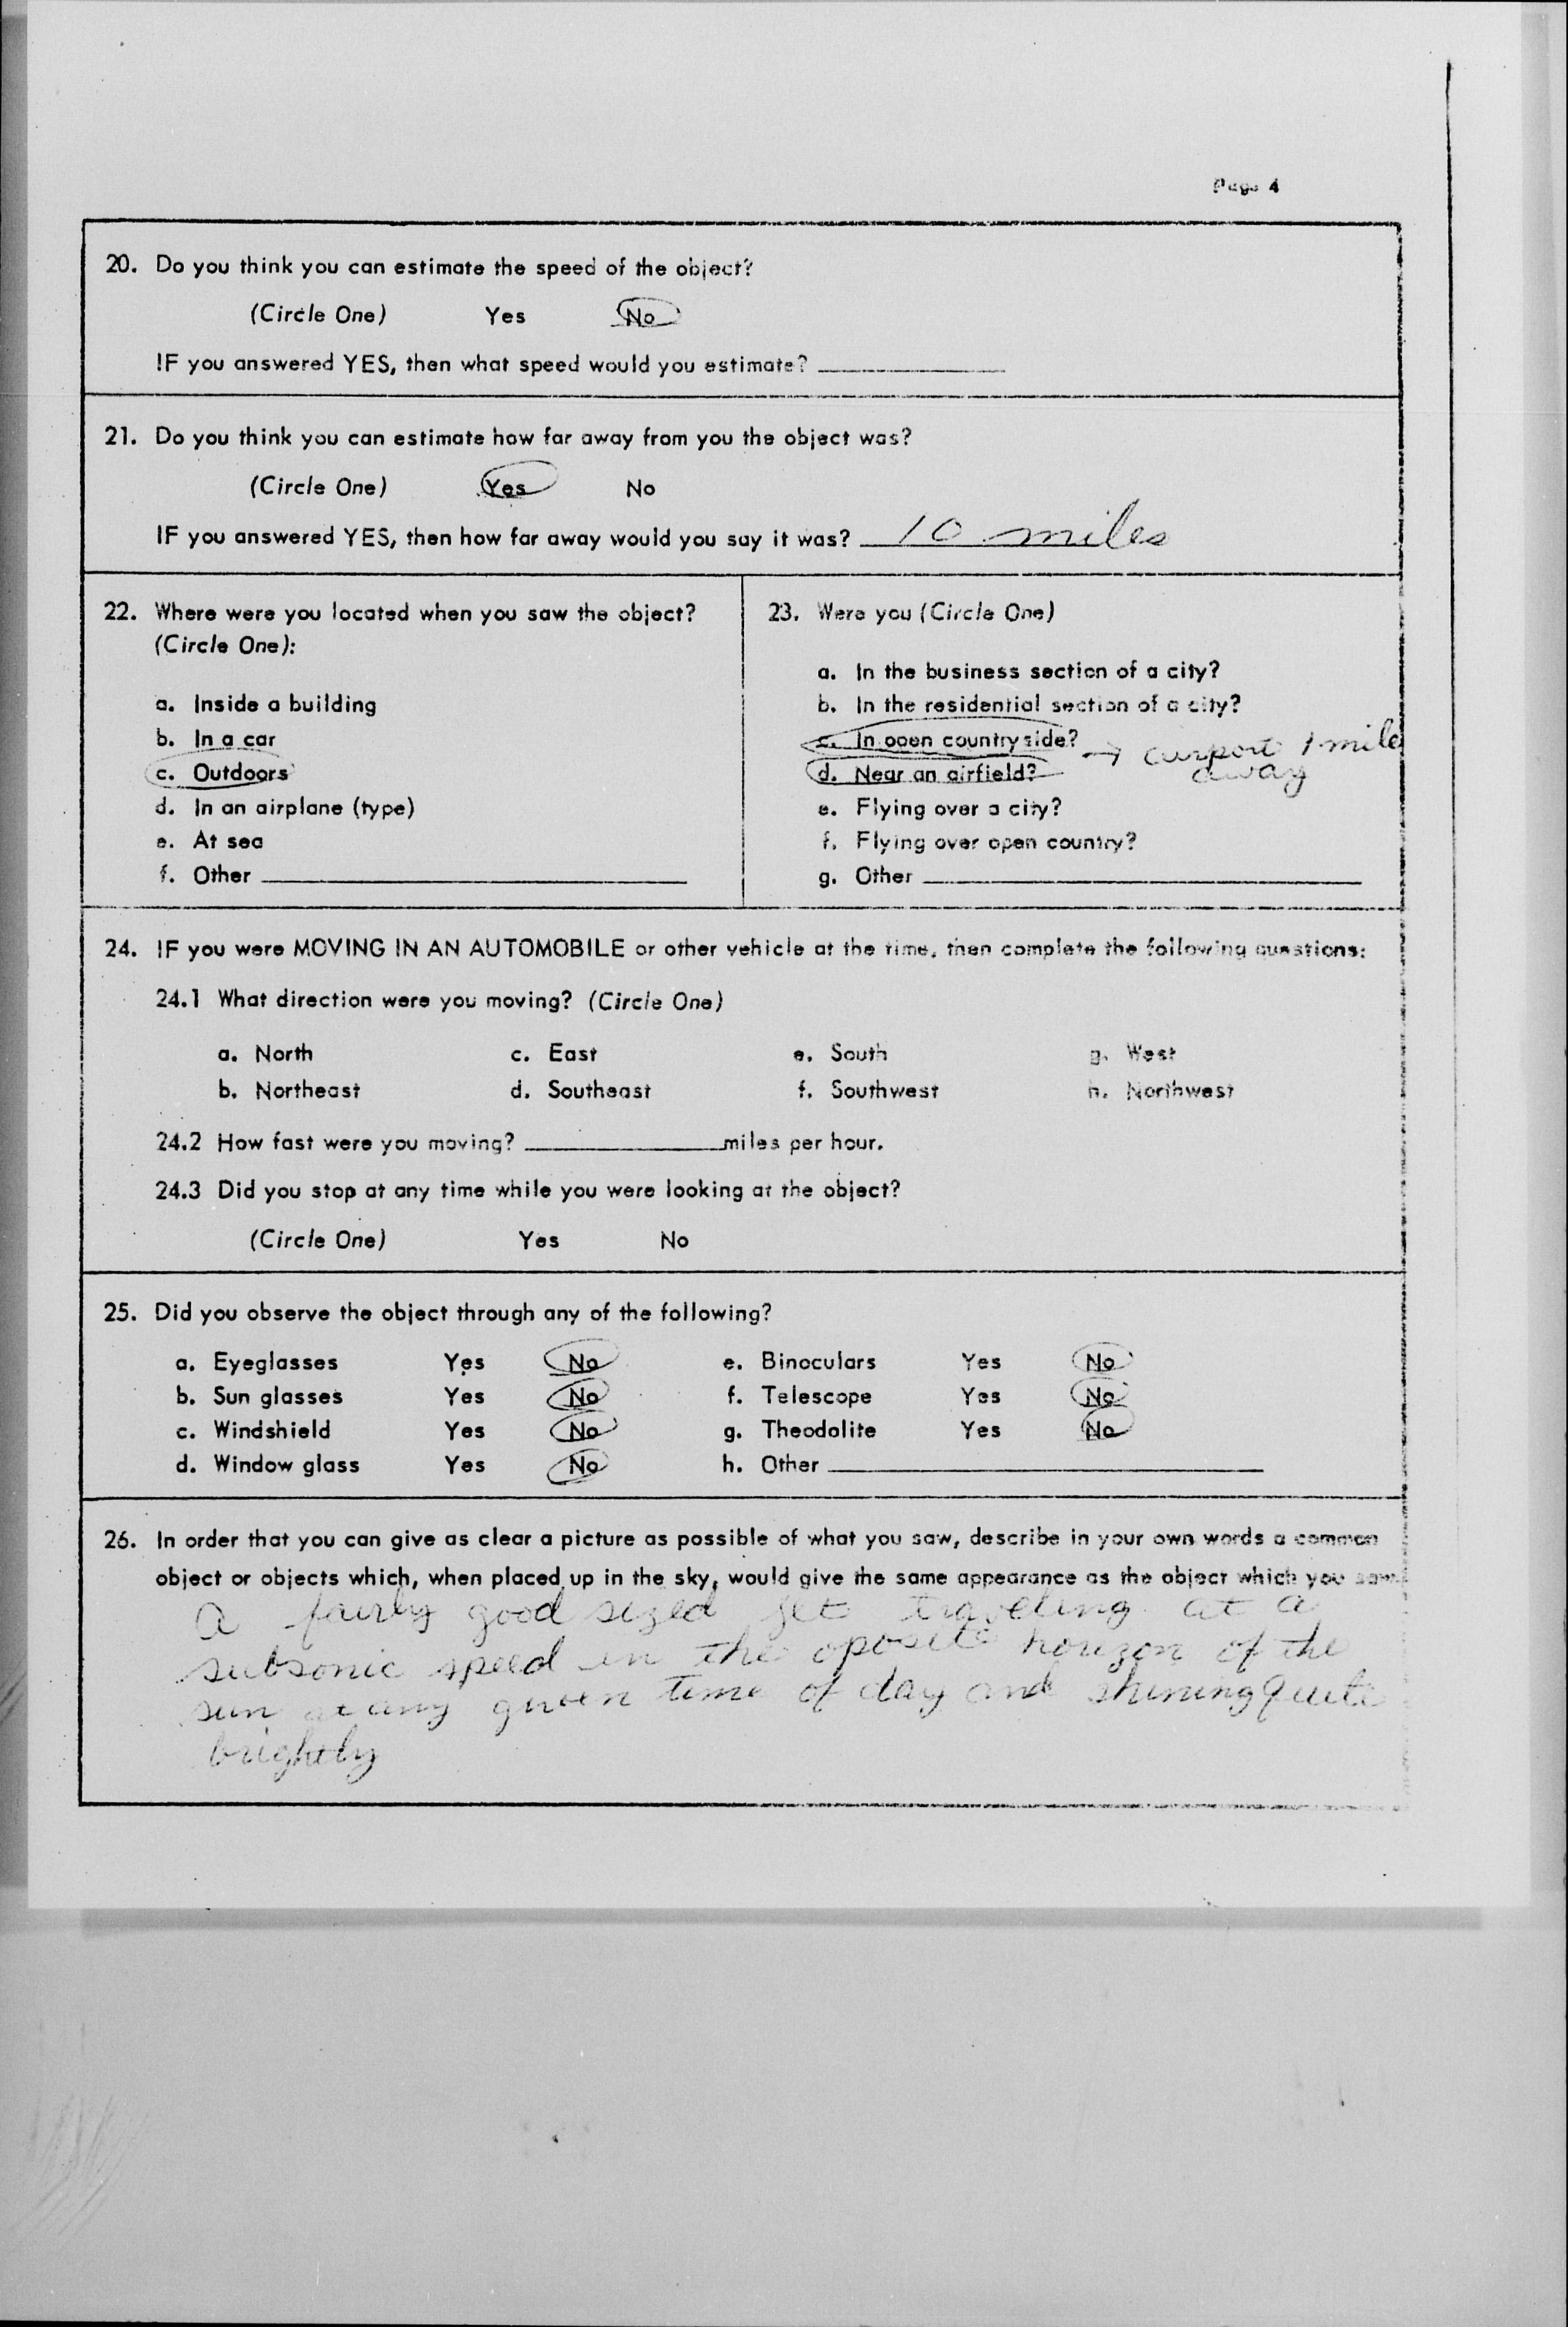 Page 4
20. Do you think you can estimate the speed of the object?
(Circle One) Yes No
IF you answered YES, then what speed would you estimate?
21. Do you think you can estimate how far away from you the object was?
(Circle One) Yes No
IF you answered YES, then how far away would you say it was? 10 miles
22. Where were you located when you saw the object?
(Circle One):
a. Inside a building
b. In a car
c. Outdoors
d. In an airplane (type)
e. At sea
f. Other
23. Were you (Circle One)
a. In the business section of a city?
b. In the residential section of a city?
c. In open countryside?
d. Near an airfield? → airport 1 mile
away
e. Flying over a city?
f. Flying over open country?
g. Other
24. IF you were MOVING IN AN AUTOMOBILE or other vehicle at the time, then complete the following questions:
24.1 What direction were you moving? (Circle One)
a. North c. East e. South g. West
b. Northeast d. Southeast f. Southwest h. Northwest
24.2 How fast were you moving? miles per hour.
24.3 Did you stop at any time while you were looking at the object?
(Circle One) Yes No
25. Did you observe the object through any of the following?
a. Eyeglasses Yes No e. Binoculars Yes No
b. Sun glasses Yes No f. Telescope Yes No
c. Windshield Yes No g. Theodolite Yes No
d. Window glass Yes No h. Other
26. In order that you can give as clear a picture as possible of what you saw, describe in your own words a common
object or objects which, when placed up in the sky, would give the same appearance as the object which you saw.
A fairly good sized jet traveling at a
subsonic speed in the oposite horizon of the
sun at any given time of day and shining quite
brightly